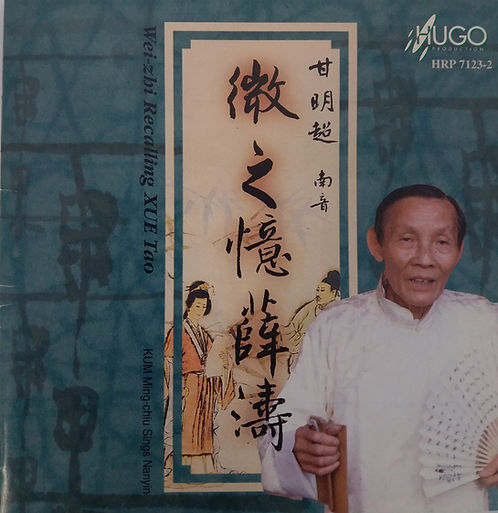 HUGO
PRODUCTION
HRP 7123-2
甘明超 南音
微之憶薛濤
Wei-zhi Recalling XUE Tao
KUM Ming-chiu Sings Nanyin